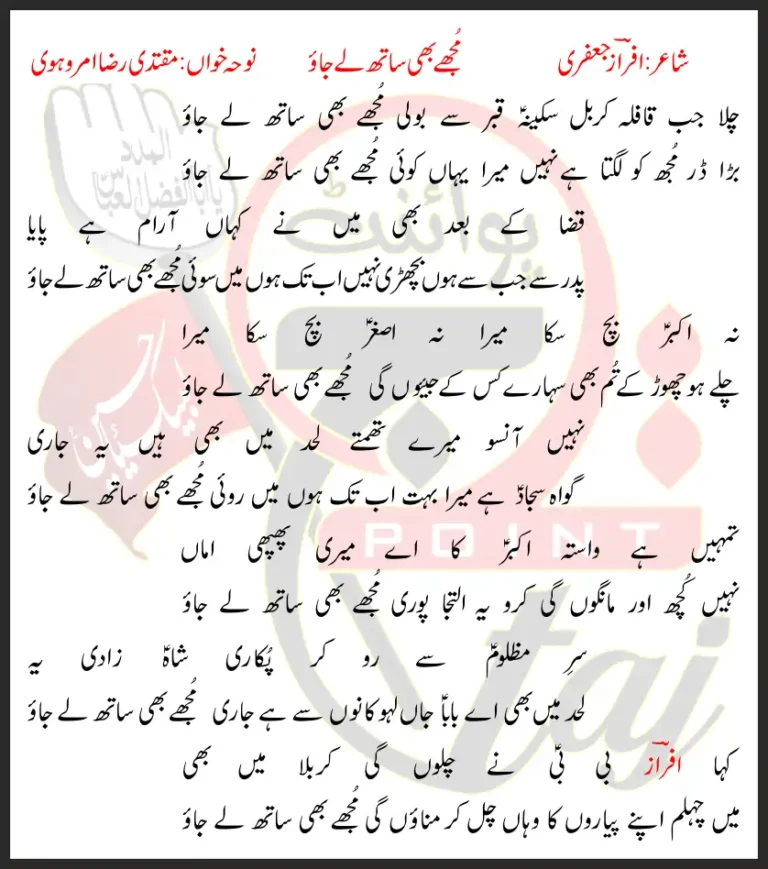 شاعر: افرازؔ جعفری مُجھے بھی ساتھ لے جاؤ نوحہ خواں: مقتدی رضا امروہوی
چلا جب قافلہ کربل سکینہؑ قبر سے بولی مُجھے بھی ساتھ لے جاؤ
بڑا ڈر مُجھ کو لگتا ہے نہیں میرا یہاں کوئی مُجھے بھی ساتھ لے جاؤ
قضا کے بعد بھی میں نے کہاں آرام ہے پایا
پدر سے جب سے ہوں بچھڑی نہیں اب تک ہوں میں سوئی مُجھے بھی ساتھ لے جاؤ
نہ اکبرؑ بچ سکا میرا نہ اصغرؑ بچ سکا میرا
چلے ہو چھوڑ کے تُم بھی سہارے کس کے جیئوں گی مُجھے بھی ساتھ لے جاؤ
نہیں آنسو میرے تھمتے لحد میں بھی ہیں یہ جاری
گواہ سجادؑ ہے میرا بہت اب تک ہوں میں روئی مُجھے بھی ساتھ لے جاؤ
تمہیں ہے واستہ اکبرؑ کا اے میری پھپھی اماں
نہیں کُچھ اور مانگوں گی کرو یہ التجا پوری مُجھے بھی ساتھ لے جاؤ
سرِ مظلومؑ سے رو کر پُکاری شاہؑ زادی یہ
لحد میں بھی اے باباؑ جاں لہو کانوں سے ہے جاری مُجھے بھی ساتھ لے جاؤ
کہا افرازؔ بی بیؑ نے چلوں گی کربلا میں بھی
میں چہلم اپنے پیاروں کا وہاں چل کر مناؤں گی مُجھے بھی ساتھ لے جاؤ
المدد
یا ابالفضل العباس
لبیک یا حسین
پوائنٹ
POINT
taj